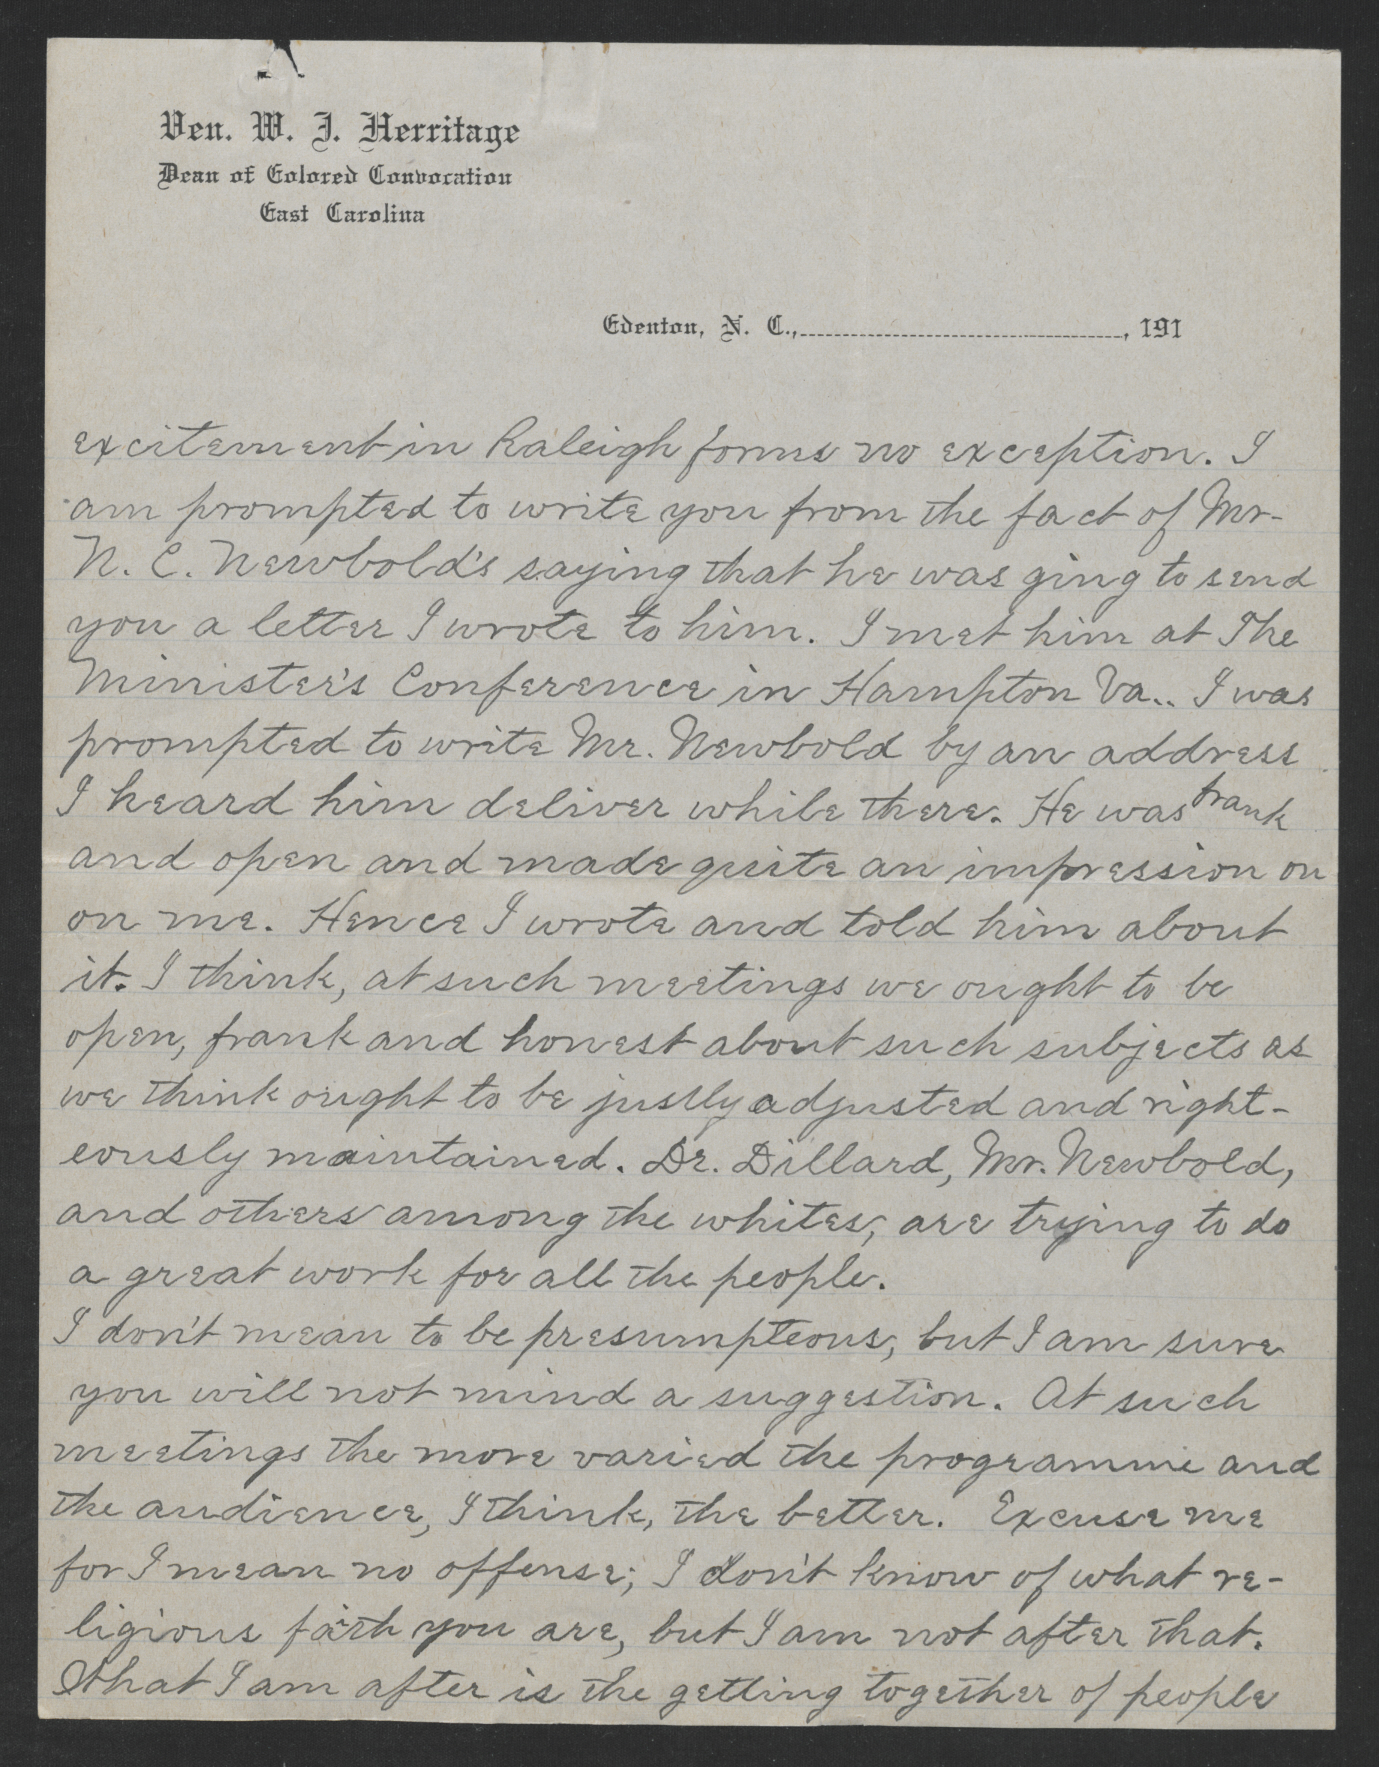 Ven. W. J. Herritage
Dean of Colored Convocation
East Carolina
Edenton, N. C., , 191
excitement in Raleigh forms no exception. I
am prompted to write you from the fact of Mr.
N. C. Newbold's saying that he was ging to send
you a letter I wrote to him. I met him at The
Minister's Conference in Hampton Va.. I was
prompted to write Mr. Newbold by an address
I heard him deliver while there. He was frank
and open and made quite an impression on
on me. Hence I wrote and told him about
it. I think, at such meetings we ought to be
open, frank and honest about such subjects as
we think ought to be justly adjusted and right-
eously maintained. Dr. Dillard, Mr. Newbold,
and others among the whites, are trying to do
a great work for all the people.
I don't mean to be presumpteous, but I am sure
you will not mind a suggestion. At such
meetings the more varied the programme and
the audience, I think, the better. Excuse me
for I mean no offense; I don't know of what re-
ligious faith you are, but I am not after that.
What I am after is the getting together of people